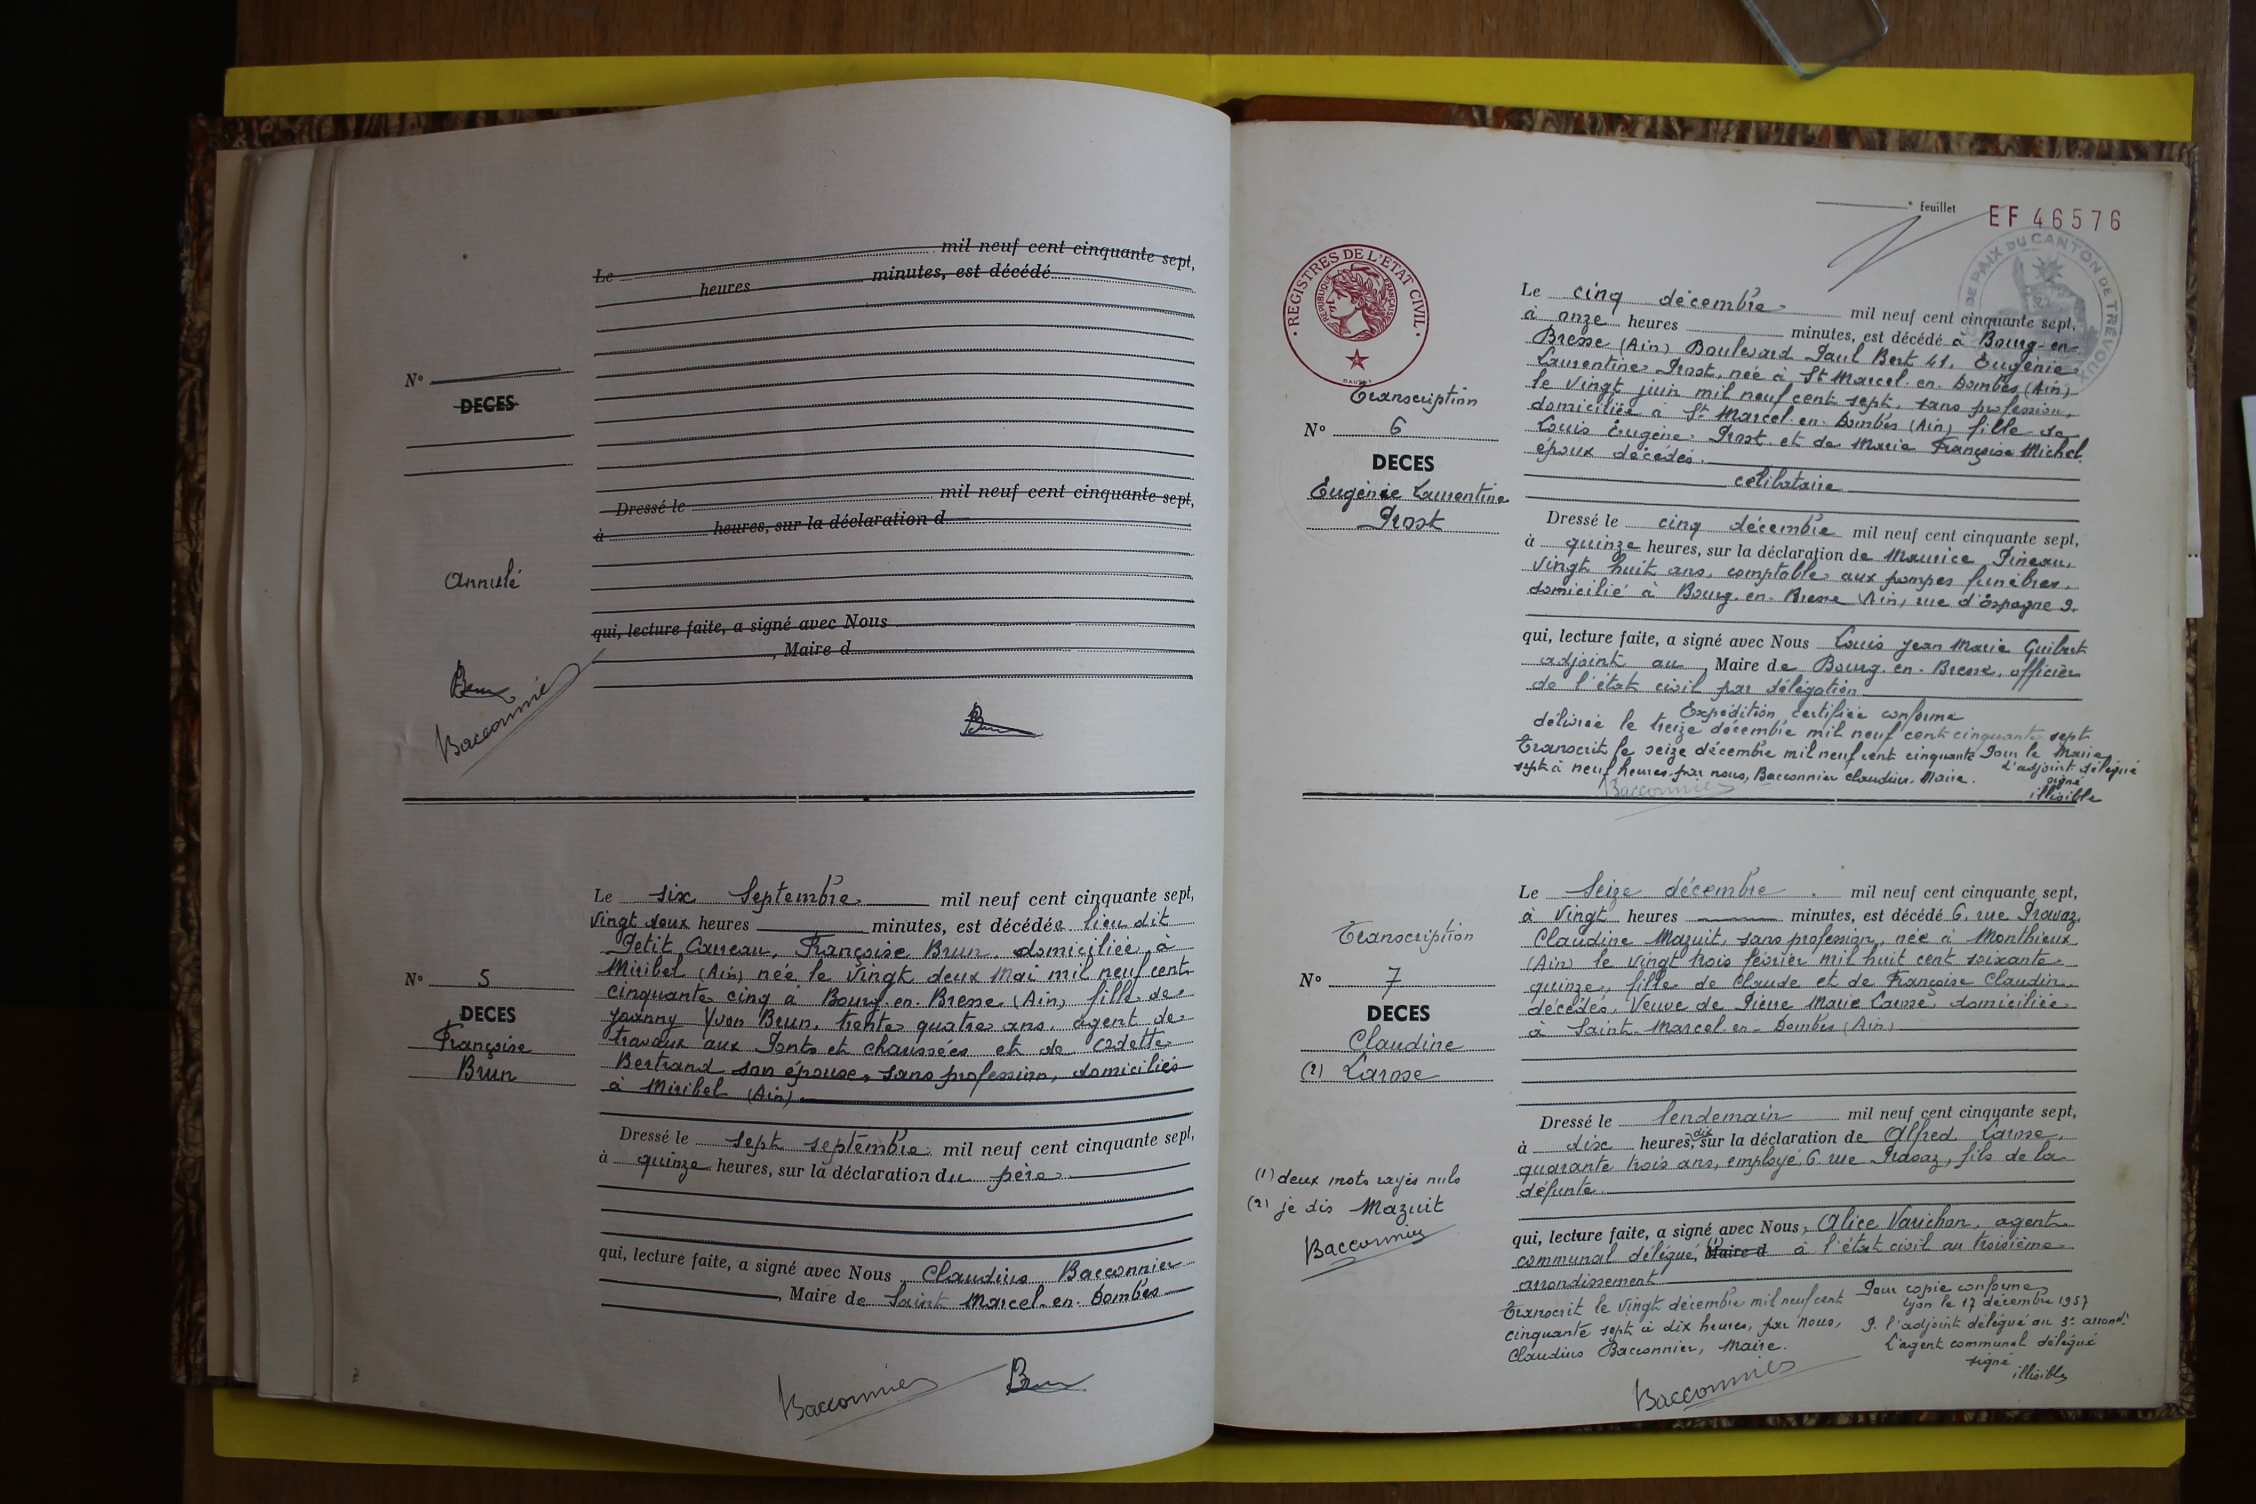 Le mil neuf cent cinquante sept,
heures minutes, est décédé
N°
DECES
Dressé le mil neuf cent cinquante sept,
à heures, sur la déclaration d
Annulé
qui, lecture faite, a signé avec Nous
, Maire d
Brun
Bacconnier
Brun
Le six Septembre mil neuf cent cinquante sept,
vingt deux heures minutes, est décédée lieu dit
Petit Carreau, Françoise Brun, domiciliée à
Miribel (Ain) née le vingt deux Mai mil neuf cent
cinquante cinq à Bourg-en-Bresse (Ain) fille de
Joanny Yvon Brun, trente quatre ans, agent de
travaux aux Ponts et chaussées et de Odette
Bertrand son épouse, sans profession, domiciliés
à Miribel (Ain)
N° 5
DECES
Françoise
Brun
Dressé le sept septembre mil neuf cent cinquante sept,
à quinze heures, sur la déclaration du père
qui, lecture faite, a signé avec Nous Claudius Bacconnier
, Maire de Saint Marcel-en-Dombes
Bacconnier Brun
e feuillet EF 46576
REGISTRES DE L'ETAT CIVIL
REPUBLIQUE FRANÇAISE
DE PAIX DU CANTON DE TREVOUX
Transcription
N° 6
DECES
Eugénie Laurentine
Prost
Le cinq décembre mil neuf cent cinquante sept,
à onze heures minutes, est décédé à Bourg-en-
Bresse (Ain) Boulevard Paul Bert 41, Eugénie
Laurentine Prost, née à St Marcel-en-Dombes (Ain)
le vingt juin mil neuf cent sept, sans profession,
domiciliée à St Marcel-en-Dombes (Ain) fille de
Louis Eugène Prost et de Marie Françoise Michel,
époux décédés.
celibataire
Dressé le cinq décembre mil neuf cent cinquante sept,
à quinze heures, sur la déclaration de Maurice Pineau,
vingt huit ans, comptable aux pompes funèbres,
domicilié à Bourg-en-Bresse (Ain) rue d'Espagne 9.
qui, lecture faite, a signé avec Nous Louis Jean Marie Guibert
adjoint au Maire de Bourg-en-Bresse, officier
de l'état civil par délégation
Expédition certifiée conforme
délivrée le treize décembre mil neuf cent cinquante sept
Transcrit le seize décembre mil neuf cent cinquante
sept à neuf heures par nous, Bacconnier Claudius, Maire.
Pour le Maire
L'adjoint délégué
signé
illisible
Bacconnier
Transcription
N° 7
DECES
Claudine
(2) Larose
Le Seize décembre mil neuf cent cinquante sept,
à vingt heures minutes, est décédé 6, rue Pravaz,
Claudine Mazuit, sans profession, née à Monthieux
(Ain) le vingt trois février mil huit cent soixante
quinze, fille de Claude et de Françoise Claudin
décédés, Veuve de Pierre Marie Larose, domiciliée
à Saint-Marcel-en-Dombes (Ain)
Dressé le lendemain mil neuf cent cinquante sept,
à dix heures, dix sur la déclaration de Alfred Larose,
quarante trois ans, employé, 6 rue Pravaz, fils de la
défunte.
(1) deux mots rayés nuls
(2) je dis Mazuit
Bacconnier
qui, lecture faite, a signé avec Nous, Alice Varichon, agent
communal délégué, (1) Maire d à l'état civil au troisième
arrondissement
Transcrit le vingt décembre mil neuf cent
cinquante sept à dix heures, par nous,
Claudius Bacconnier, Maire.
Pour copie conforme
Lyon le 17 décembre 1957
P. l'adjoint délégué au 3e arrond.
L'agent communal délégué
signé
illisible
Bacconnier